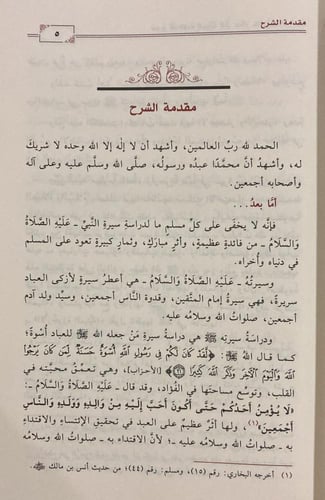 مقدمة الشرح
٥
مقدمة الشرح
الحمد لله ربِّ العالمين، وأشهد أن لا إله إلا الله وحده لا شريك
له، وأشهدُ أنَّ محمَّدًا عبدُه ورسولُه، صلَّى الله وسلَّم عليه وعلى آله
وأصحابِه أجمعين.
أمَّا بعدُ...
فإنَّه لا يخفَى على كلِّ مسلمٍ ما لدراسةِ سيرةِ النبيِّ ـ عَلَيْهِ الصَّلَاةُ
وَالسَّلَامُ ـ من فائدةٍ عظيمةٍ، وأثرٍ مباركٍ، وثمارٍ كبيرةٍ تعود على المسلم
في دنياه وأُخراه.
وسيرتُه ـ عَلَيْهِ الصَّلَاةُ وَالسَّلَامُ ـ هي أعطرُ سيرةٍ لأزكى العباد
سريرةً، فهي سيرةُ إمام المتَّقين، وقدوة النَّاس أجمعين، وسيِّد ولد آدم
أجمعين، صلواتُ الله وسلامُه عليه.
ودراسةُ سيرته ﷺ هي دراسةُ سيرةِ مَنْ جعله الله ﷻ للعباد أُسوةً؛
كما قال اللهُ ﷻ: ﴿لَقَدْ كَانَ لَكُمْ فِي رَسُولِ اللَّهِ أُسْوَةٌ حَسَنَةٌ لِّمَن كَانَ يَرْجُوا
اللَّهَ وَالْيَوْمَ الْآخِرَ وَذَكَرَ اللَّهَ كَثِيرًا ﴿٢١﴾﴾ [الأحزاب]، وهي تعمِّقُ محبَّتَه في
القلب، وتوسِّع مساحتَها في الفُؤاد، وقد قال ـ عَلَيْهِ الصَّلَاةُ وَالسَّلَامُ ـ:
«لَا يُؤْمِنُ أَحَدُكُمْ حَتَّى أَكُونَ أَحَبَّ إِلَيْهِ مِنْ وَالِدِهِ وَوَلَدِهِ وَالنَّاسِ
أَجْمَعِينَ»(١)، ولها أثرٌ عظيمٌ على العبد في تحقيق الائتساء والاقتداء
به ـ صلواتُ الله وسلامُه عليه ـ؛ لأنَّ الاقتداءَ به ـ صلواتُ الله وسلامُه
(١) أخرجه البخاري: رقم (١٥)، ومسلم: رقم (٤٤)؛ من حديث أنس بن مالك ﷺ.